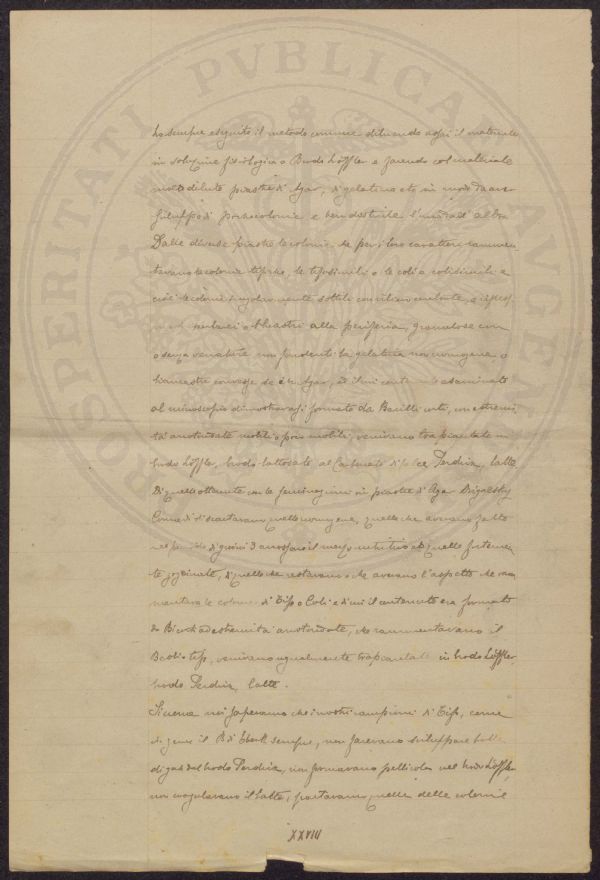 ho sempre eseguito il metodo comune diluendo ogni il materiale
in soluzione fisiologica o Brodo Löffler e facendo col materiale
molto diluito piastre di Agar, di gelatina etc in modo da aver
sviluppo di poche colonie e ben distinte l'una dall'altra
Dalle diverse piastre le colonie che per i loro caratteri rammen
tavano le colonie tifiche, le tifosimili o le coli o colisimili e
cioè le colonie regolarmente sottili
alla periferia, granulose con
o senza venature non fondenti la gelatina non omogenee o
biancastre convesse se in Agar, ed il cui contenuto esaminato
al microscopio dimostravasi formato da Bacilli corti, con estremi
tà arrotondate mobili o poco mobili, venivano trapiantate in
brodo Löffler, brodo lattosato al Carbonato di calce Perdrix, latte
Di quelle ottenute con le seminagioni in piastre d'Agar Drigalsky
Conradi si scartavano quelle omogenee, quelle che avevano fatto
nel periodo di giorni 3 arrossare il mezzo nutritivo e quelle fortemen
te , di quelle che restavano e che avevano l'aspetto che ram
mentava le colonie di Tifo o Coli e di cui il contenuto era formato
da Bi corti ad estremità arrotondate, che rammentavano il
Bacillo tifo, venivano ugualmente trapiantati in brodo Löffler,
brodo Perdrix, latte.
Siccome noi sapevamo che i nostri campioni di Tifo, come
di genere il B di Eberth sempre, non facevano sviluppare bolle
di gas dal brodo Perdrix, non formavano pellicola nel brodo Löffler,
non coagulavano il latte, scartavamo quelle delle colonie
XXVIII
PROSPERITATI PVBLICAE AVGEN